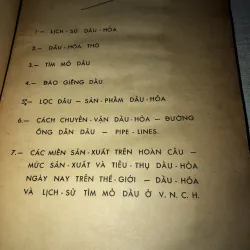 1.— LỊCH-SỬ DẦU-HỎA
2.— DẦU-HỎA THÔ
3.— TÌM MỎ DẦU
4.— ĐÀO GIẾNG DẦU
5.— LỌC DẦU — SẢN-PHẨM DẦU-HỎA
6.— CÁCH CHUYÊN-VẬN DẦU-HỎA — ĐƯỜNG
ỐNG DẪN DẦU — PIPE-LINES.
7.— CÁC MIỀN SẢN-XUẤT TRÊN HOÀN CẦU —
MỨC SẢN-XUẤT VÀ TIÊU-THỤ DẦU-HỎA
NGÀY NAY TRÊN THẾ-GIỚI — DẦU-HỎA
VÀ LỊCH-SỬ TÌM MỎ DẦU Ở V.N.C.H.